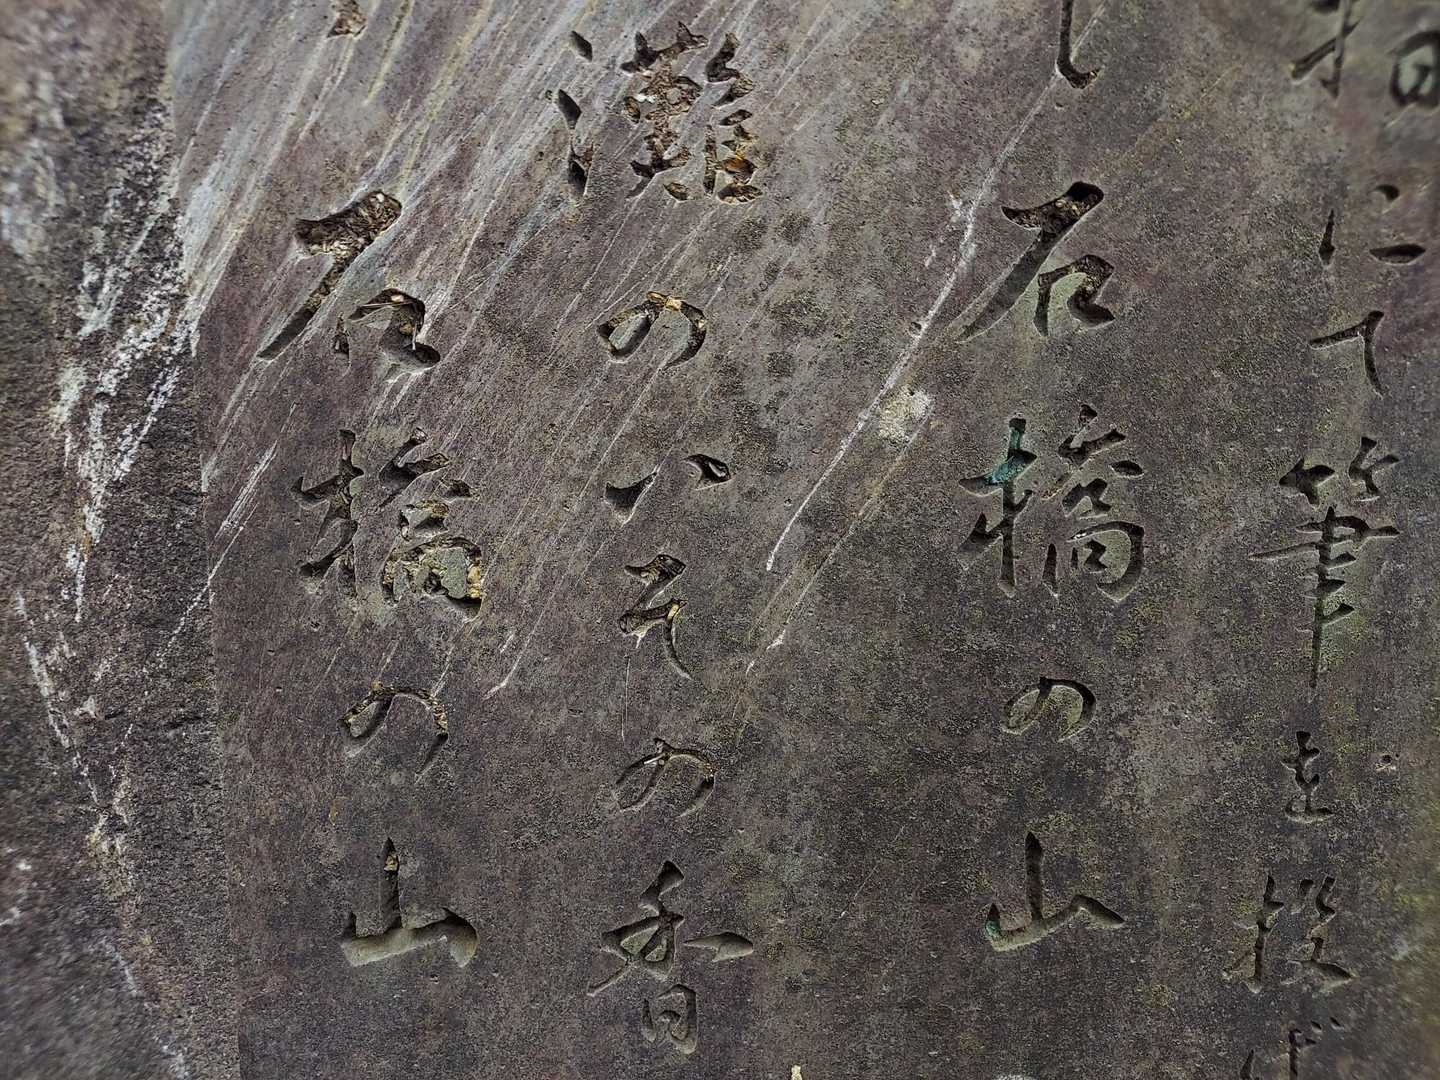 にて筆を投げ
し石橋の山
瀧のいその香
石橋の山